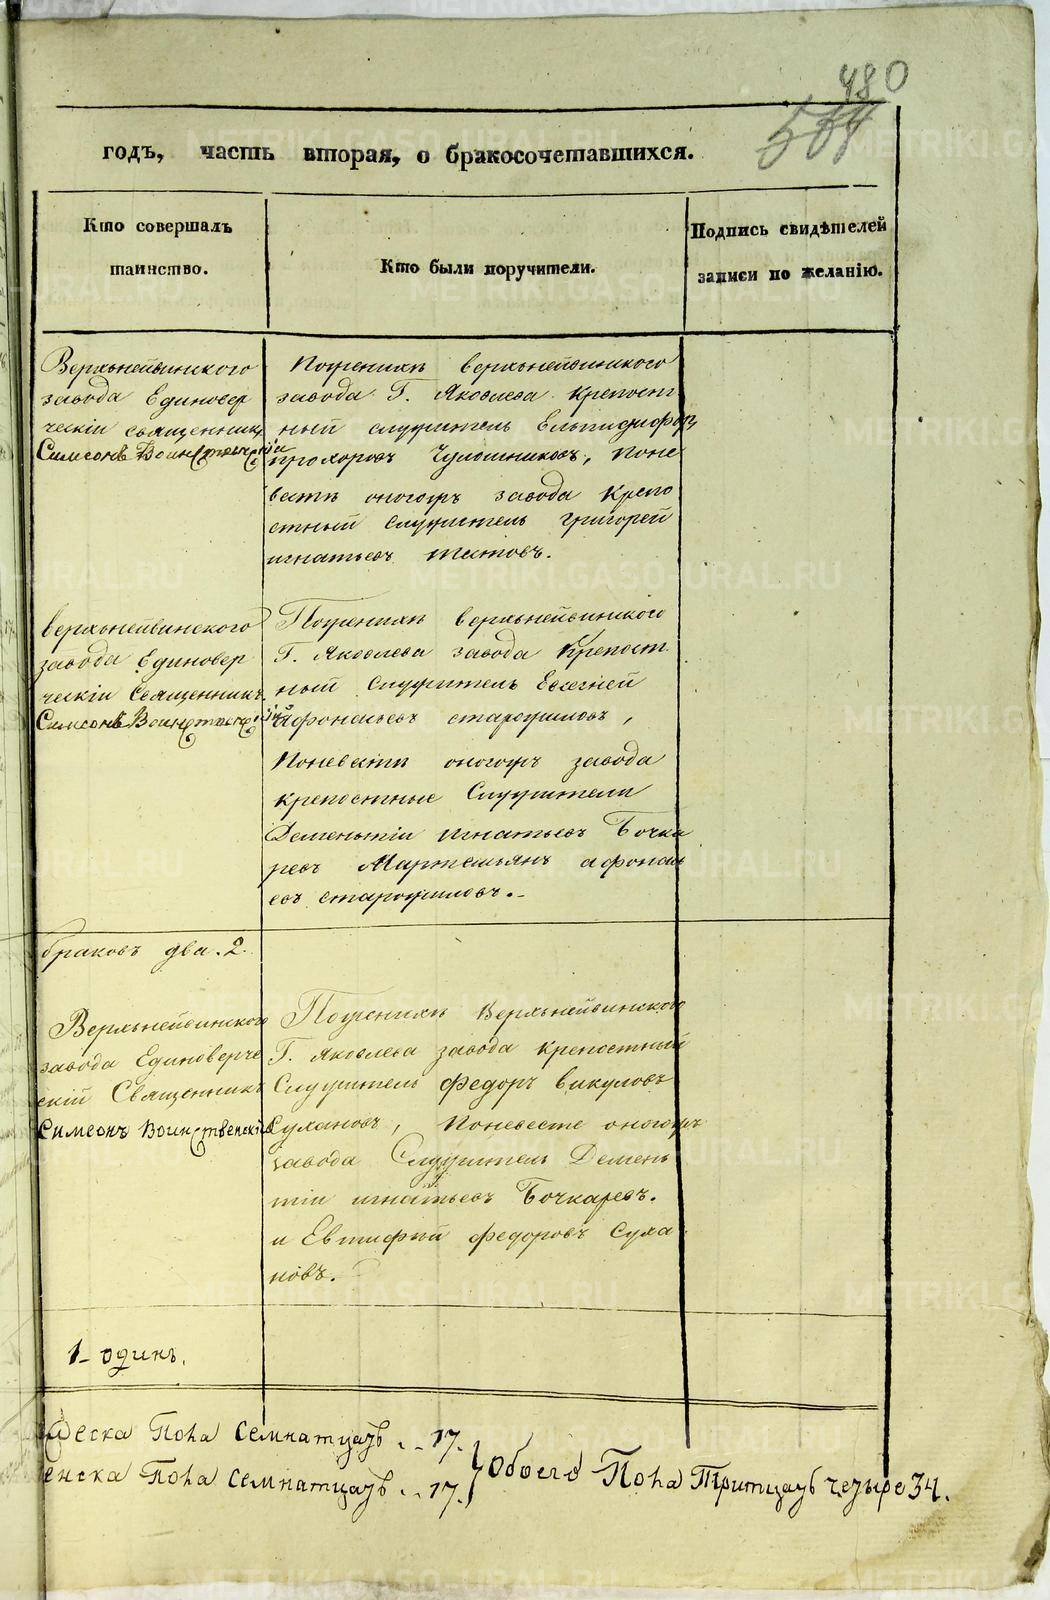 480
годъ, часть вторая, о бракосочетавшихся.
Кто совершалъ
таинство.
Кто были поручители.
Подпись свидѣтелей
записи по желанію.
Верхьнейвинского
завода Единовер
ческіи священникъ
Симеонъ Воинственскій
Пожених верхьнейвинского
завода Г. Яковлева крепост
ный служитель Елпидифоръ
прохоровъ Чулошниковъ, поне
весте оногожъ завода крепо
стный служитель григорей
игнатьевъ титовъ.
верхьнейвинского
завода Единовер
ческіи Священникъ
Симеонъ Воинственскій
Пожених верхьнейвинского
Г. Яковлева завода Крепост
ный Служитель Евгеней
Афонасьевъ старожиловъ,
Поневесте оногожъ завода
крепостные Служители
Деменьтіи Игнатьевъ Бочка
ревъ Мартемьянъ афонась
евъ старожиловъ.
браковъ два. 2.
Верхьнейвинского
завода Единоверче
скій Священникъ
Симеонъ Воинственскій
Пожених Верхьнейвинского
Г. Яковлева завода крепостный
Служитель Федоръ викуловъ
Сухановъ, Поневесте оногожъ
завода Служитель Демень
тіи игнатьевъ Бочкаревъ.
и Евтифій федоровъ Суха
новъ.
1 - одинъ.
жеска Пола семнатцать .. 17.
енска Пола семнатцать .. 17.
Обоего Пола Тритцать четыре 34.